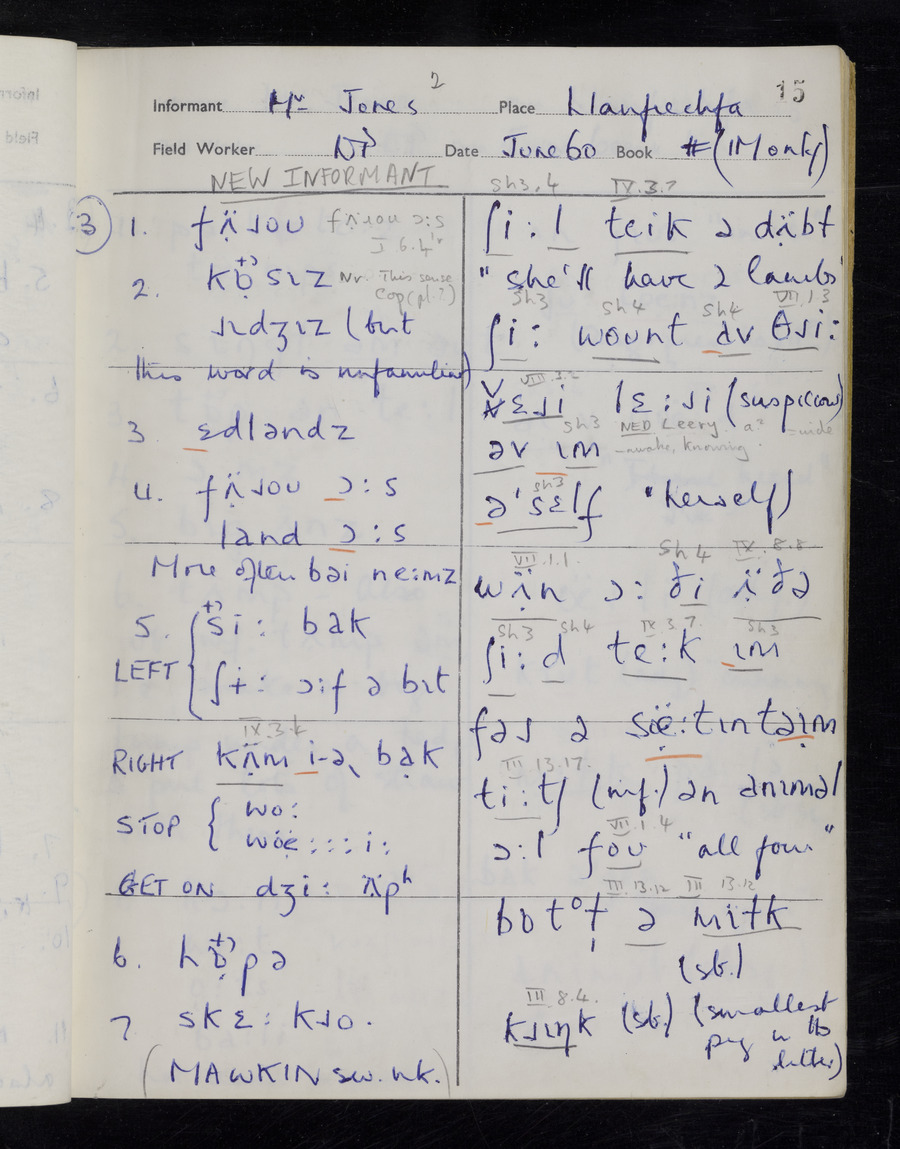 2
15
Informant Mr Jones Place Llanfrechfa
Field Worker DP Date June 60 Book # (1 Monks)
NEW INFORMANT
3 1. fʌ̈ɹou fʌ̈ɹou ɔ:s
I 6.4
2. kɒsɪz Nr. This sense
Cop (pl.?)
ɹɪdʒɪz (but
this word is unfamiliar)
3. ɛdlandz
4. fʌ̈ɹou ɔ:s
land ɔ:s
More often bəi ne:mz
5. si: bak
LEFT ʃɨ: ɔ:f ə bɪt
IX.3.4
RIGHT kʌ̈m i-ə bak
STOP wo:
wöɛ::::i:
GET ON dʒi: ʌ̈pʰ
6. hɒpə
7. skɛ:kɹo.
(MAWKIN s.w. nk.)
Sh3,4 IX.3.7
ʃi:l teik ə dʌ̈bɫ
"she'll have 2 lambs'
Sh3 Sh4 Sh4 VII.1.3
ʃi: wount əv θɹi:
VIII.3.2
vɛɹi lɛ:ɹi (suspicious)
Sh3 NED Leery a² =wide
-awake, knowing.
əv ɪm
Sh3
ə'sɛlf "herself)
VII.1.1. Sh4 IX.8.8
wʌ̈n ɔ: ði ʌ̈ðə
Sh3 Sh4 IX.3.7. Sh3
ʃi:d te:k ɪm
fəɹ ə sœ̈:tɪntəɪm
III 13.17.
ti:tʃ (inf.) an animal
VII.1.4
ɔ:l fou "all four"
III.13.12 III 13.12
botᵒɫ ə mɪɫk
(sb.)
III 8.4.
kɹɪŋk (sb.) (smallest
pig in the
litter)